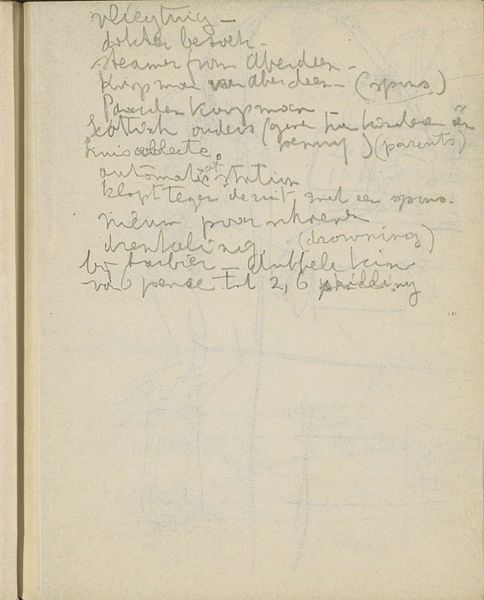 vliegtuig –
dokter bezoek –
steamer from Aberdeen –
Koopman van Aberdeen – (spons)
Paarden koopman
Scottish ouders (geve hun kinderen een
penny) (parents)
huiscollecte.
automatic at station
klopt tegen de ruit met een spons.
nieuw paar schoenen
drenkeling (drowning)
bij barbier – dubbele kin
van 6 pence tot 2,6 pudding